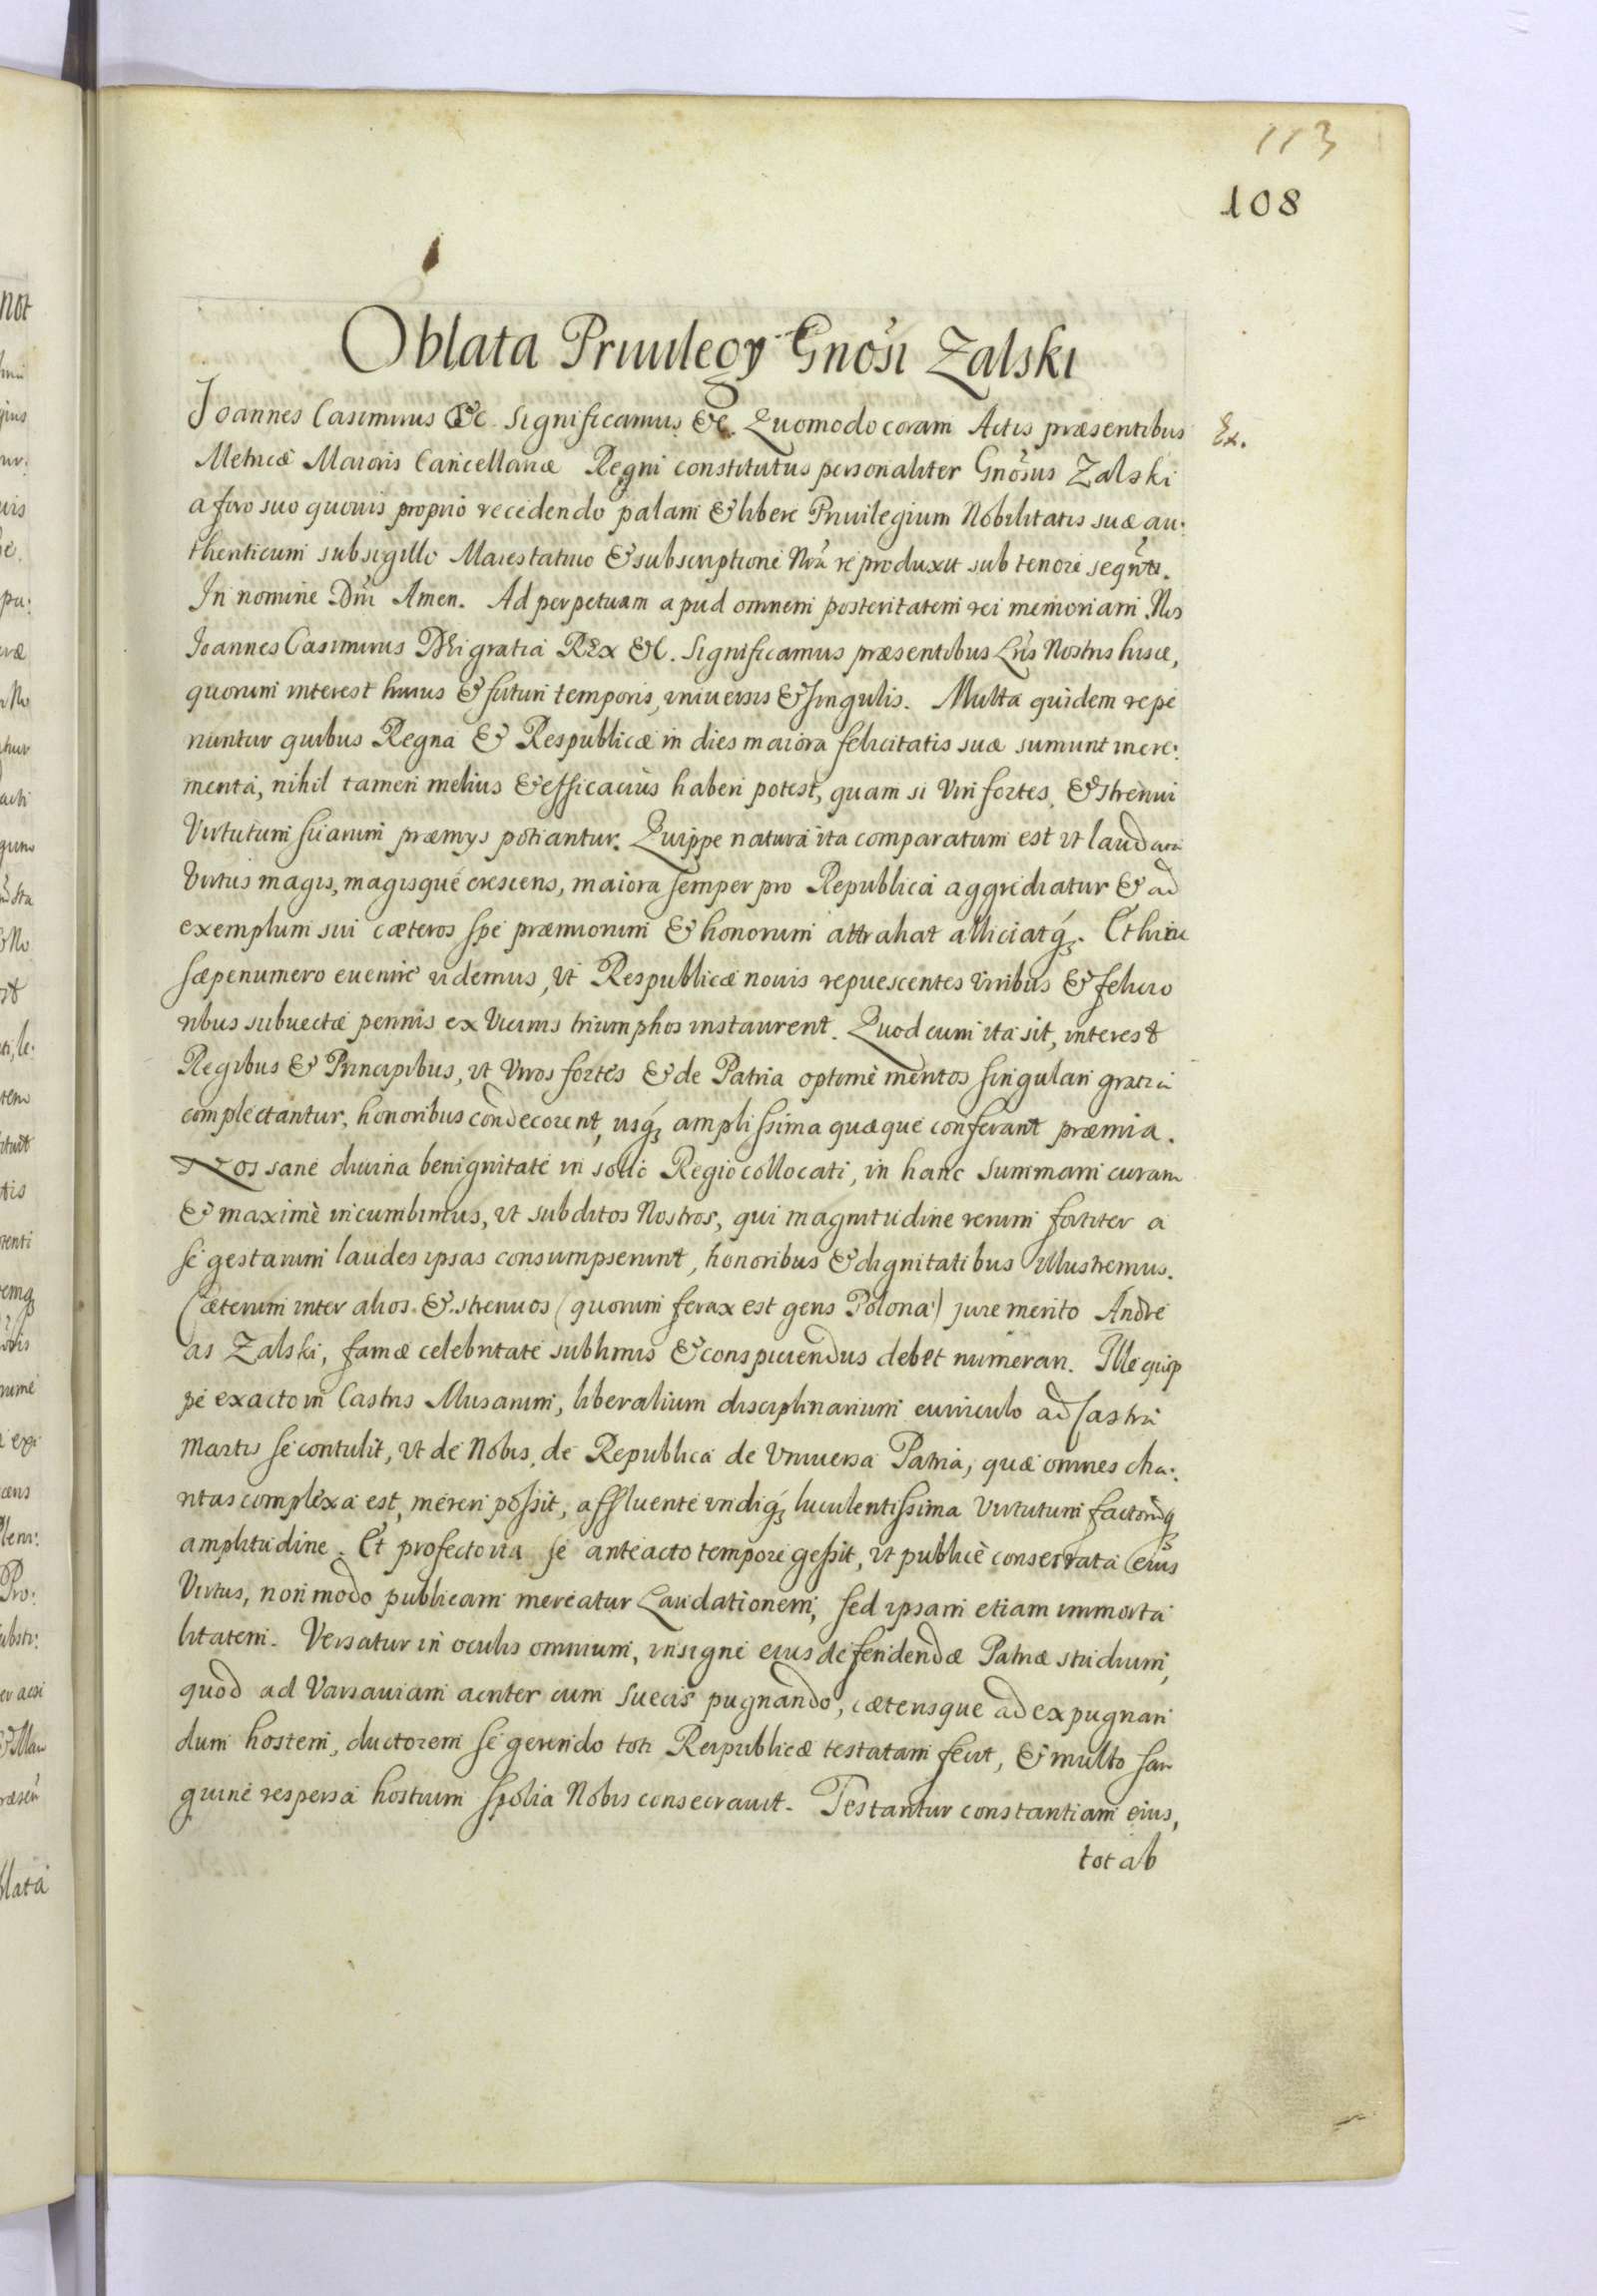 113
108
Oblata Priuilegy Gnosi Zalski
Joannes Casimirus &c. Significamus &c. Quomodo coram Actis præsentibus
Ex.
Metricæ Maioris Cancellariæ Regni constitutus personaliter Gnosus Zalski
a foro suo quouis proprio recedendo palam & libere Priuilegium Nobilitatis suæ au:
thenticum sub sigillo Maiestatiuo & subscriptione Nra reproduxit sub tenore seqnti.
In nomine Dni Amen. Ad perpetuam apud omnem posteritatem rei memoriam. Nos
Joannes Casimirus DEi gratia REx &c. Significamus præsentibus Lris Nostris hisce,
quorum interest huius & futuri temporis, vniuersis & singulis. Multa quidem repe
riuntur quibus Regna & Respublicæ in dies maiora felicitatis suæ sumunt incre:
menta, nihil tamen melius & efficaciùs haberi potest, quam si Viri fortes, & strenui
Virtutum suarum præmys potiantur. Quippe natura ita comparatum est vt laudata
Virtus magis, magisque crescens, maiora semper pro Republica aggrediatur & ad
exemplum sui cæteros spe præmiorum & honorum attrahat alliciatq́. Et hinc
sæpenumero euenire videmus, vt Respublicæ nouis repuescentes viribus & felicio
ribus subuectæ pennis ex Vicinis triumphos instaurent. Quod cum ita sit, interest
Regibus & Principibus, vt Viros fortes & de Patria optimè meritos singulari gratia
complectantur, honoribus condecorent, usq́ amplissima quæque conferant præmia.
Nos sane diuina benignitate in solio Regio collocati, in hanc summam curam
& maximè incumbimus, vt subditos Nostros, qui magnitudine rerum fortiter a
se gestarum laudes ipsas consumpserunt, honoribus & dignitatibus illustremus.
Cæterum inter alios & strenuos (quorum ferax est gens Polona) jure merito Andre
as Zalski, famæ celebritate sublimis & conspiciendus debet numerari. Ille quip
pe exacto in Castris Musarum, liberalium disciplinarium curriculo ad Castra
Martis se contulit, vt de Nobis, de Republica de Vniuersa Patria, quæ omnes cha:
ritas complexa est, mereri possit, affluente vndiq́ luculentissima Virtutum factorumq́
amplitudine. Et profecto ita se anteacto tempore gessit, vt publicè conserrata eius
Virtus, non modo publicam mereatur Laudationem, sed ipsam etiam immorta
litatem. Versatur in oculis omnium, insigne eius defendendæ Patriæ studium,
quod ad Varsauiam acriter cum Suecis pugnando, cæterisque ad expugnan
dum hostem, ductorem se gerendo toti Reipublicæ testatam fecit, & multo san
guine respersa hostium spolia Nobis consecrauit. Testantur constantiam eius,
tot ab